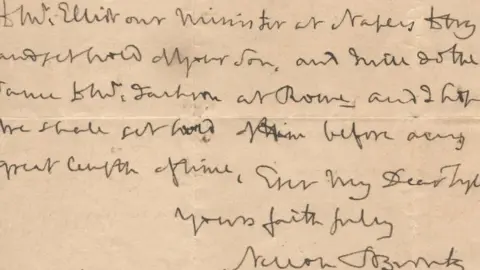 to Mr. Elliot our Minister at Naples to try
and get hold of your Son, and will do the
same to Mr. Jackson at Rome, and I hope
we shall get hold of him before any
great length of time, Ever My Dear
Yours faithfully
Nelson & Bronte